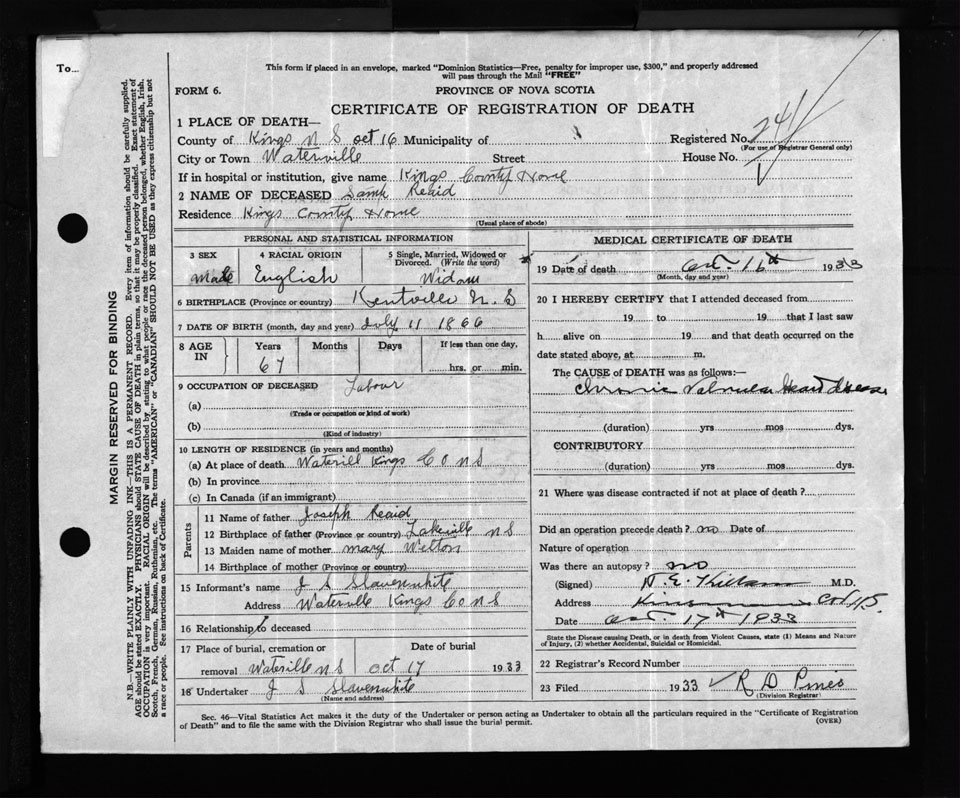 To...
This form if placed in an envelope, marked "Dominion Statistics—Free, penalty for improper use, $300," and properly addressed
will pass through the Mail "FREE"
FORM 6.
PROVINCE OF NOVA SCOTIA
CERTIFICATE OF REGISTRATION OF DEATH
1 PLACE OF DEATH—
County of Kings N S oct 16 Municipality of
Registered No. 241
(For use of Registrar General only)
City or Town Waterville Street House No.
If in hospital or institution, give name Kings County Home
2 NAME OF DECEASED Reaid
Residence Kings County Home
(Usual place of abode)
PERSONAL AND STATISTICAL INFORMATION
3 SEX 4 RACIAL ORIGIN 5 Single, Married, Widowed or
Divorced. (Write the word)
Male English Widow
6 BIRTHPLACE (Province or country) Kentville N. S
7 DATE OF BIRTH (month, day and year) July 11 1866
8 AGE IN Years Months Days If less than one day,
67 hrs. or min.
9 OCCUPATION OF DECEASED Labour
(a)
(Trade or occupation or kind of work)
(b)
(Kind of industry)
10 LENGTH OF RESIDENCE (in years and months)
(a) At place of death Watervill Kings Co N S
(b) In province
(c) In Canada (if an immigrant)
Parents
11 Name of father Joseph Reaid
12 Birthplace of father (Province or country) Lakeville N S
13 Maiden name of mother Mary Welton
14 Birthplace of mother (Province or country)
15 Informant's name J S Slavenwhite
Address Waterville Kings Co N S
16 Relationship to deceased
17 Place of burial, cremation or Date of burial
removal Waterville N S oct 17 1933
18 Undertaker J S Slavenwhite
(Name and address)
MEDICAL CERTIFICATE OF DEATH
19 Date of death Oct. 16th 1933
(Month, day and year)
20 I HEREBY CERTIFY that I attended deceased from
19 to 19 that I last saw
h alive on 19 and that death occurred on the
date stated above, at m.
The CAUSE of DEATH was as follows:—
Chronic Valvular Heart disease
(duration) yrs mos dys.
CONTRIBUTORY
(duration) yrs mos dys.
21 Where was disease contracted if not at place of death?
Did an operation precede death? no Date of
Nature of operation
Was there an autopsy? no
(Signed) M.D.
Address
Date Oct. 17th 1933
State the Disease causing Death, or in death from Violent Causes, state (1) Means and Nature
of Injury, (2) whether Accidental, Suicidal or Homicidal.
22 Registrar's Record Number
23 Filed 1933 R D Pineo
(Division Registrar)
Sec. 46—Vital Statistics Act makes it the duty of the Undertaker or person acting as Undertaker to obtain all the particulars required in the "Certificate of Registration
of Death" and to file the same with the Division Registrar who shall issue the burial permit.
(OVER)
MARGIN RESERVED FOR BINDING
N.B.—WRITE PLAINLY WITH UNFADING INK—THIS IS A PERMANENT RECORD. Every item of information should be carefully supplied.
AGE should be stated EXACTLY. PHYSICIANS should STATE CAUSE OF DEATH in plain terms, so that it may be properly classified. Exact statement of
OCCUPATION is very important. RACIAL ORIGIN will be described by stating to what people or race the deceased person belonged, whether English, Irish,
Scotch, French, German, Russian, Ruthenian, etc. The terms "AMERICAN" or "CANADIAN" SHOULD NOT BE USED as they express citizenship but not
a race or people. See instructions on back of Certificate.